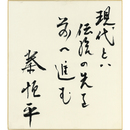 現代とは
伝統の先を
前へ進む
秦恒平